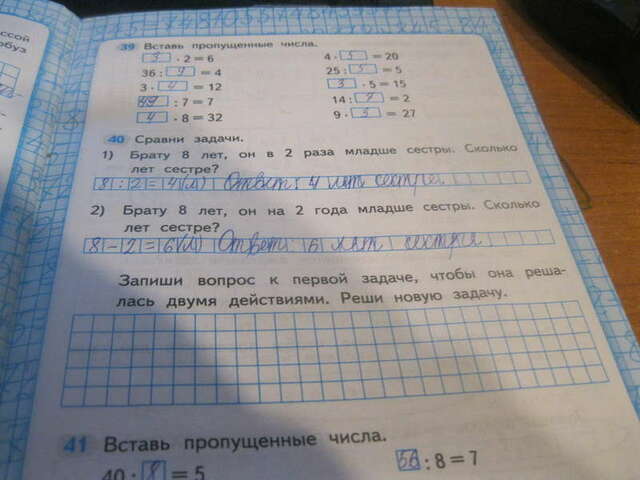 ссой
рбуз
39 Вставь пропущенные числа.
3 · 2 = 6
4 · 5 = 20
36 : 9 = 4
25 : 5 = 5
3 · 4 = 12
3 · 5 = 15
49 : 7 = 7
14 : 7 = 2
4 · 8 = 32
9 · 3 = 27
40 Сравни задачи.
1) Брату 8 лет, он в 2 раза младше сестры. Сколько
лет сестре?
8 : 2 = 4 (л) Ответ: 4 лет сестра
2) Брату 8 лет, он на 2 года младше сестры. Сколько
лет сестре?
8 - 2 = 6 (л) Ответ: 6 лет сестра
Запиши вопрос к первой задаче, чтобы она реша-
лась двумя действиями. Реши новую задачу.
41 Вставь пропущенные числа.
40 : 8 = 5
56 : 8 = 7